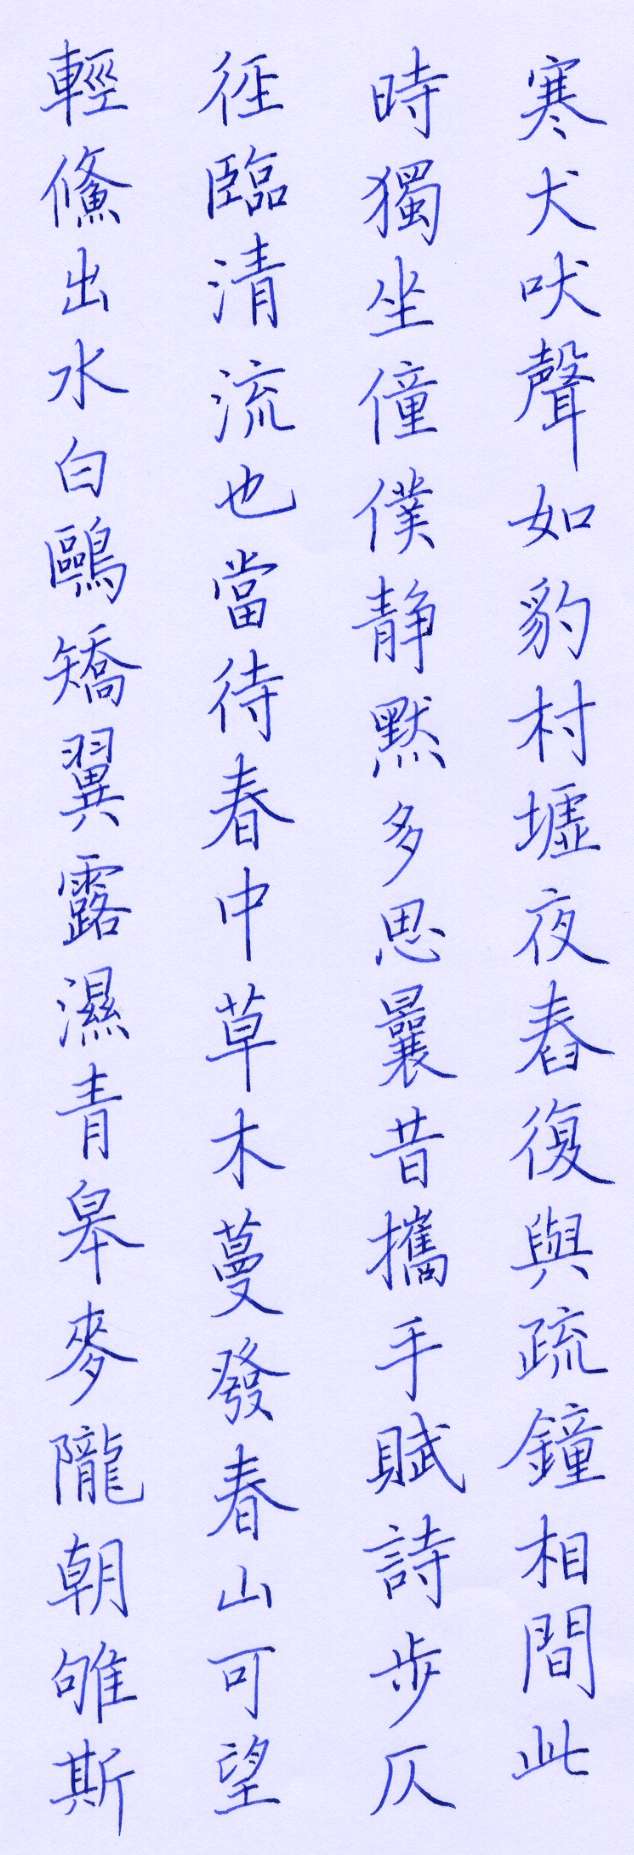 寒犬吠聲如豹村墟夜舂復與疏鐘相間此
時獨坐僮僕静默多思曩昔攜手賦詩步仄
徑臨清流也當待春中草木蔓發春山可望
輕鯈出水白鷗矯翼露濕青皋麥隴朝雊斯